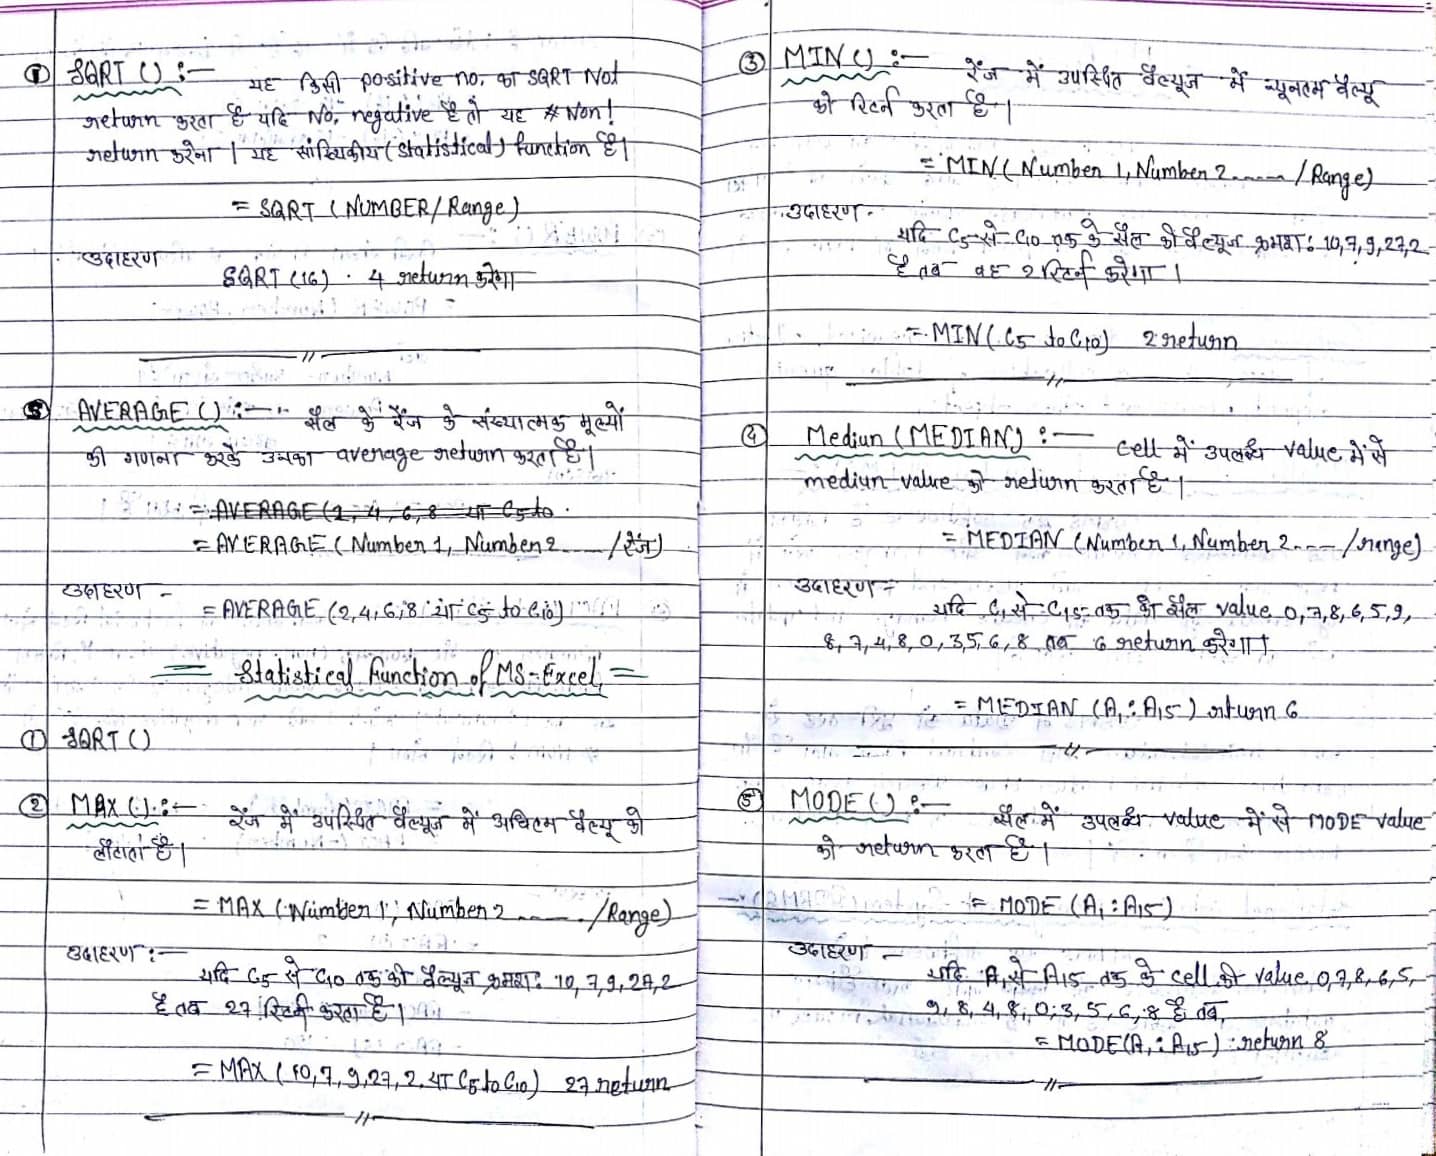 ⑧ SQRT () :— यह किसी positive no. का SQRT Not
return करता है यदि No. negative है तो यह # Non!
return करेगा । यह सांख्यिकीय (Statistical) function है।
= SQRT (NUMBER/Range)
उदाहरण
SQRT (16) . 4 return करेगा
AVERAGE () :— सैल के रेंज के संख्यात्मक मूल्यों
की गणना करके उनका average return करता है।
= AVERAGE (2, 4, 6, 8 या C5 to
= AVERAGE (Number 1, Number 2 ---- /रेंज)
उदाहरण -
= AVERAGE (2, 4, 6, 8 या C5 to C10)
= Statistical Function of MS-Excel =
① SQRT ()
② MAX () :— रेंज में उपस्थित वैल्यूज में अधिकतम वैल्यू को
लौटाता है।
= MAX (Number 1, Number 2 ----- /Range)
उदाहरण :—
यदि C5 से C10 तक की वैल्यूज क्रमश: 10, 7, 9, 27, 2
है तब 27 रिटर्न करता है।
= MAX (10, 7, 9, 27, 2, या C5 to C10) 27 return
③ MIN () :— रेंज में उपस्थित वैल्यूज में न्यूनतम वैल्यू
को रिटर्न करता है।
= MIN (Number 1, Number 2 ----- /Range)
उदाहरण -
यदि C5 से C10 तक के सैल की वैल्यूज क्रमश: 10, 7, 9, 27, 2
है तब वह 2 रिटर्न करेगा ।
= MIN (C5 to C10) 2 return
④ Mediun (MEDIAN) :— cell में उपलब्ध value में से
mediun value को return करता है।
= MEDIAN (Number 1, Number 2 ---- /range)
उदाहरण =
यदि C1 से C15 तक की सैल value, 0, 7, 8, 6, 5, 9,
8, 7, 4, 8, 0, 3, 5, 6, 8 तब 6 return करेगा।
= MEDIAN (A1 : A15) return 6
⑤ MODE () :— सैल में उपलब्ध value में से MODE value
को return करता है।
= MODE (A1 : A15)
उदाहरण -
यदि A1 से A15 तक के cell की value, 0, 7, 8, 6, 5,
9, 8, 4, 8, 0, 3, 5, 6, 8 है तब,
= MODE (A1 : A15) return 8